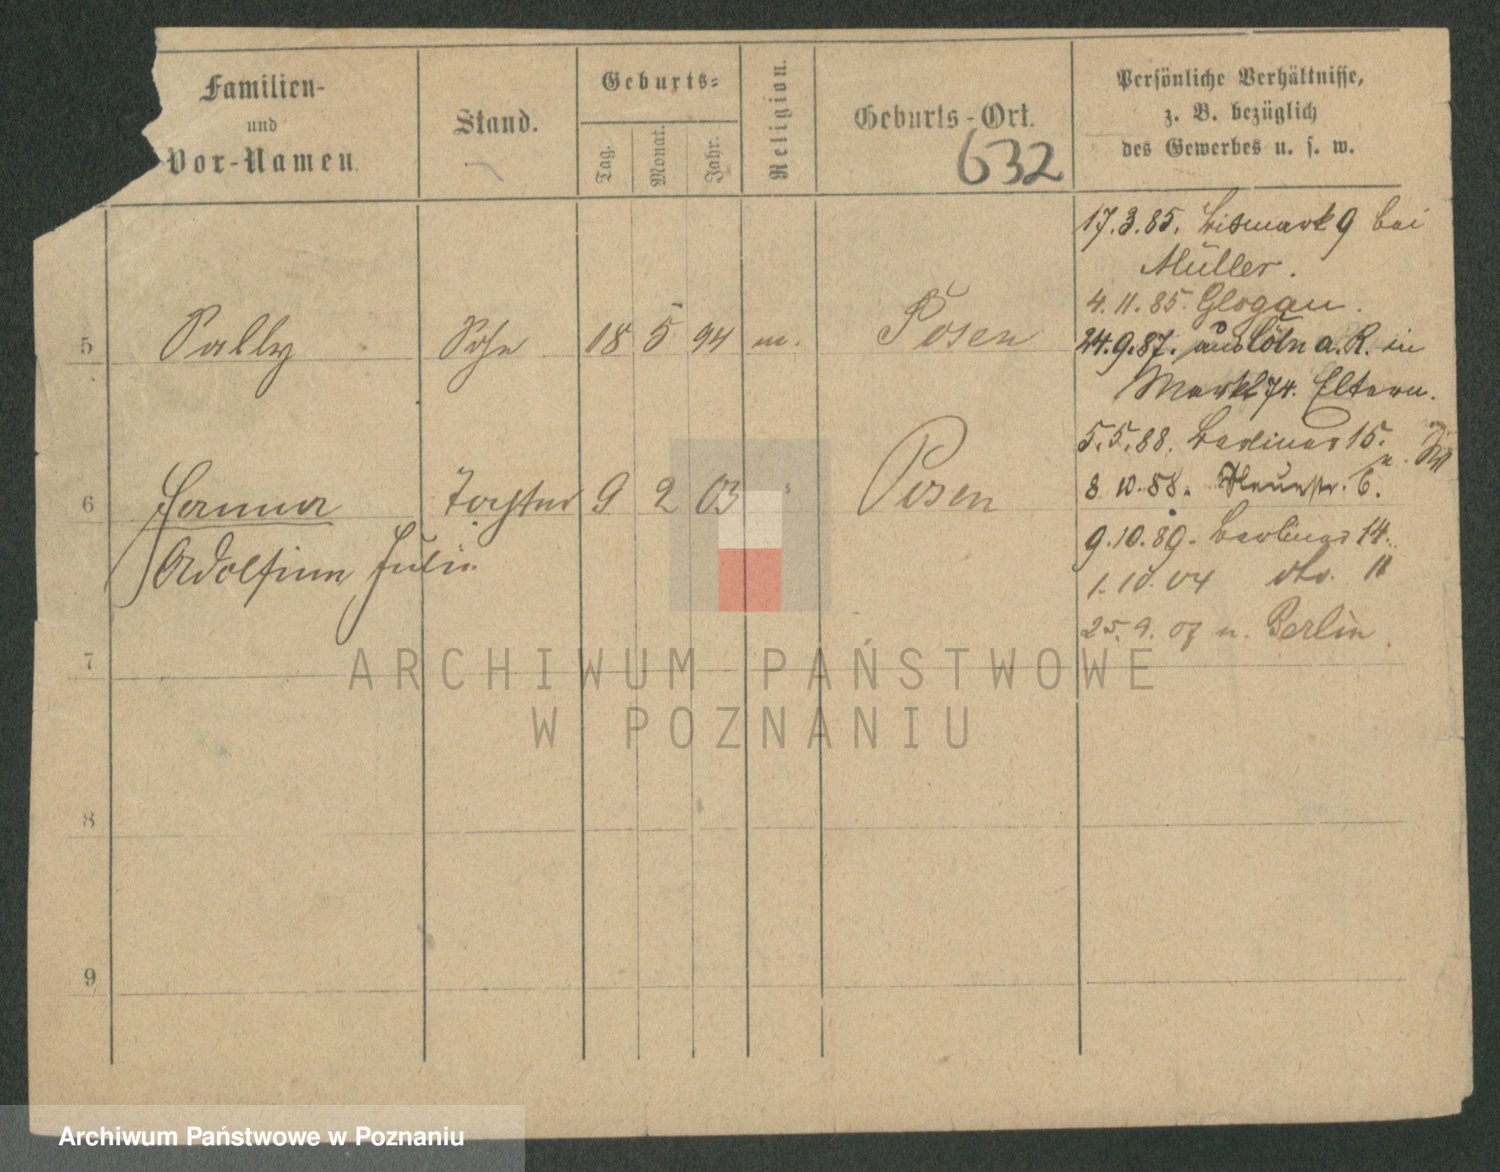 Familien-
und
Vor-Namen.
Stand.
Geburts-
Tag.
Monat.
Jahr.
Religion.
Geburts-Ort.
632
Persönliche Verhältnisse,
z. B. bezüglich
des Gewerbes u. s. w.
5 Sally Sohn 18 5 94 m. Posen
6 Hanna Tochter 9 2 03 Posen
Adolfine Julie
7
8
9
17.3.85. Bismark 9 bei
Müller.
4.11.85. Glogau.
24.9.87. aus Cöln a. R. in
Markt 74. Eltern.
5.5.88. Berliner 15.
8.10.88. 6.
9.10.89. Berliner 14.
1.10.04 do. 11
25.9.07 n. Berlin.
ARCHIWUM PAŃSTWOWE
W POZNANIU
Archiwum Państwowe w Poznaniu